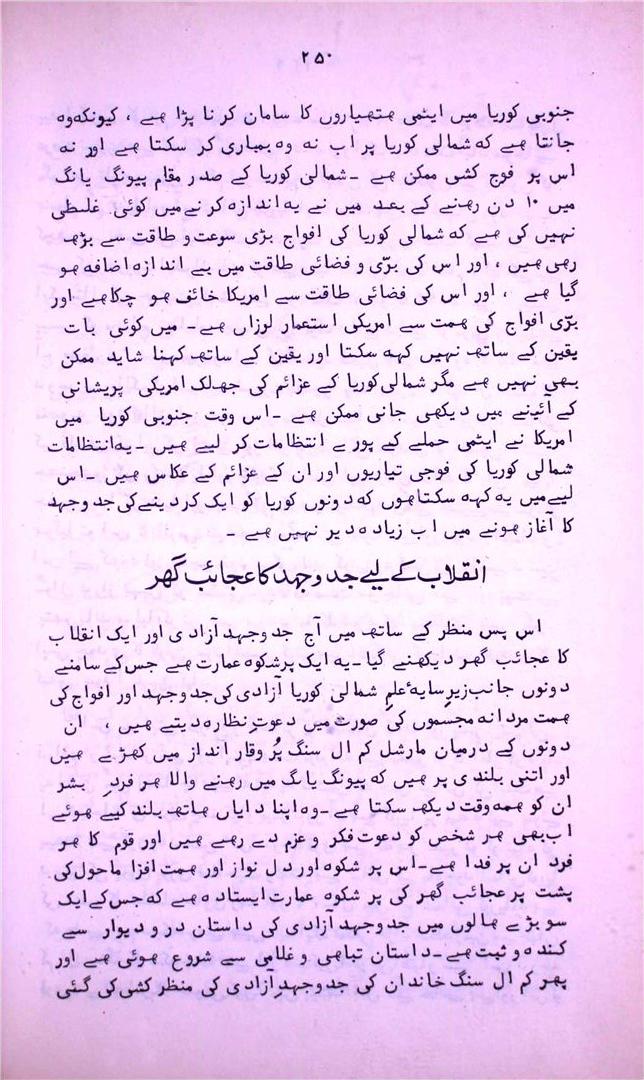 ۲۵۰
جنوبی کوریا میں ایٹمی ہتھیاروں کا سامان کرنا پڑا ہے ، کیونکہ وہ
جانتا ہے کہ شمالی کوریا پر اب نہ وہ بمباری کر سکتا ہے اور نہ
اس پر فوج کشی ممکن ہے ۔ شمالی کوریا کے صدر مقام پیونگ یانگ
میں ۱۰ دن رہنے کے بعد میں نے یہ اندازہ کرنے میں کوئی غلطی
نہیں کی ہے کہ شمالی کوریا کی افواج بڑی سوعت و طاقت سے بڑھ
رہی ہیں ، اور اس کی برّی و فضائی طاقت میں بے اندازہ اضافہ ہو
گیا ہے ، اور اس کی فضائی طاقت سے امریکا خائف ہو چکا ہے اور
برّی افواج کی ہمت سے امریکی استعمار لرزاں ہے ۔ میں کوئی بات
یقین کے ساتھ نہیں کہہ سکتا اور یقین کے ساتھ کہنا شاید ممکن
بھی نہیں ہے مگر شمالی کوریا کے عزائم کی جھلک امریکی پریشانی
کے آئینے میں دیکھی جانی ممکن ہے ۔ اس وقت جنوبی کوریا میں
امریکا نے ایٹمی حملے کے پورے انتظامات کر لیے ہیں ۔ یہ انتظامات
شمالی کوریا کی فوجی تیاریوں اور ان کے عزائم کے عکاس ہیں ۔ اس
لیے میں یہ کہہ سکتا ہوں کہ دونوں کوریا کو ایک کر دینے کی جدوجہد
کا آغاز ہونے میں اب زیادہ دیر نہیں ہے ۔
انقلاب کے لیے جدوجہد کا عجائب گھر
اس پس منظر کے ساتھ میں آج جدوجہد آزادی اور ایک انقلاب
کا عجائب گھر دیکھنے گیا ۔ یہ ایک پرشکوہ عمارت ہے جس کے سامنے
دونوں جانب زیرِ سایۂ علم شمالی کوریا آزادی کی جدوجہد اور افواج کی
ہمت مردانہ مجسموں کی صورت میں دعوتِ نظارہ دیتے ہیں ، ان
دونوں کے درمیان مارشل کم ال سنگ پُر وقار انداز میں کھڑے ہیں
اور اتنی بلندی پر ہیں کہ پیونگ یانگ میں رہنے والا ہر فردِ بشر
ان کو ہمہ وقت دیکھ سکتا ہے ۔ وہ اپنا دایاں ہاتھ بلند کیے ہوئے
اب بھی ہر شخص کو دعوت فکر و عزم دے رہے ہیں اور قوم کا ہر
فرد ان پر فدا ہے ۔ اس پر شکوہ اور دل نواز اور ہمت افزا ماحول کی
پشت پر عجائب گھر کی پر شکوہ عمارت ایستادہ ہے کہ جس کے ایک
سو بڑے ہالوں میں جدوجہد آزادی کی داستان در و دیوار سے
کندہ و ثبت ہے ۔ داستان تباہی و غلامی سے شروع ہوئی ہے اور
پھر کم ال سنگ خاندان کی جدوجہدِ آزادی کی منظر کشی کی گئی